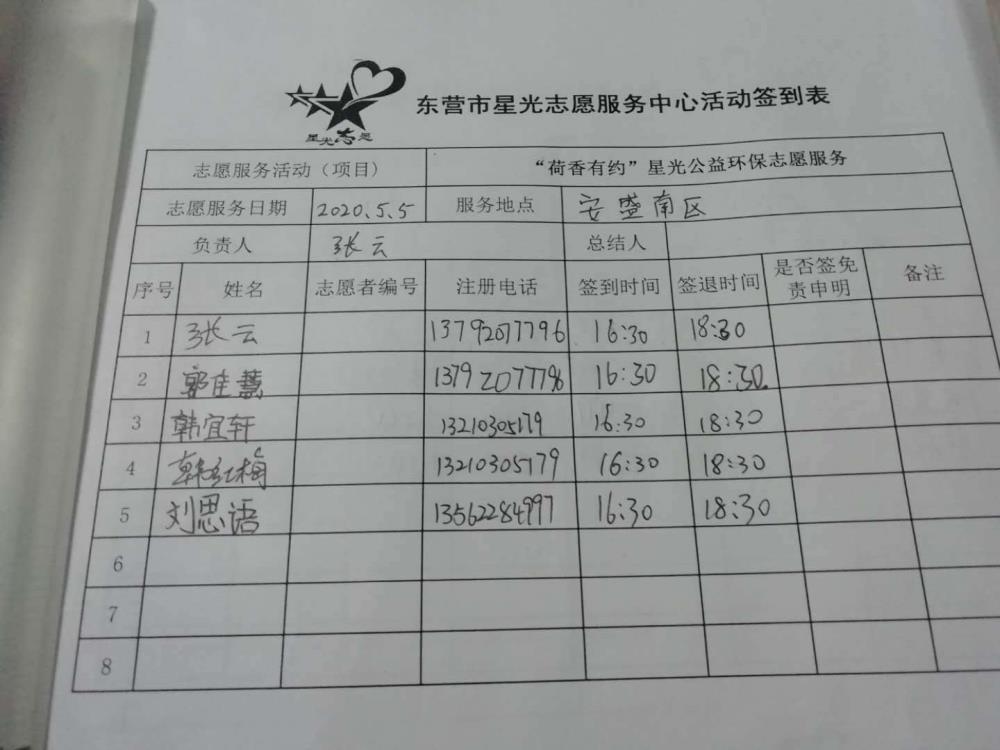 星光志愿
东营市星光志愿服务中心活动签到表
志愿服务活动（项目） “荷香有约”星光公益环保志愿服务
志愿服务日期 2020.5.5 服务地点 安盛南区
负责人 张云 总结人
序号 姓名 志愿者编号 注册电话 签到时间 签退时间 是否签免责申明 备注
1 张云 13792077796 16:30 18:30
2 郭佳慧 13792077796 16:30 18:30
3 韩宜轩 13210305179 16:30 18:30
4 韩红梅 13210305179 16:30 18:30
5 刘思语 13562284997 16:30 18:30
6
7
8